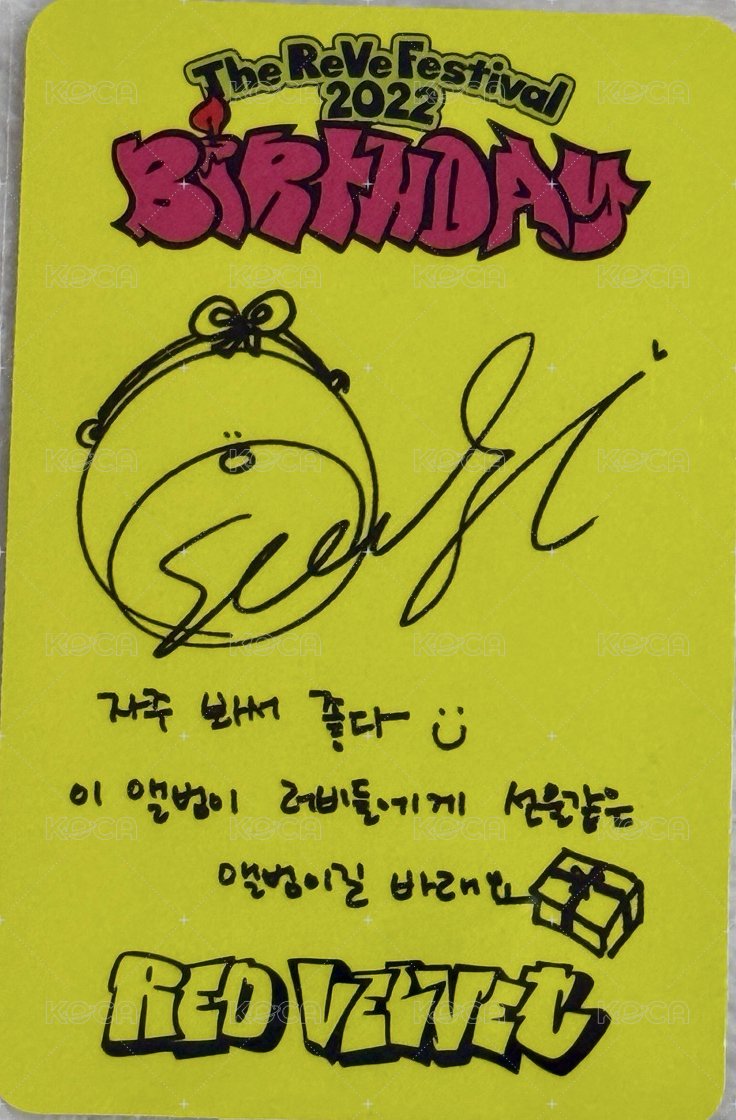 The ReVe Festival
2022
BiRTHDAY
Seulgi
자주 봐서 좋다
이 앨범이 러비들에게 선물같은
앨범이길 바래요
RED VELVET
KOCA